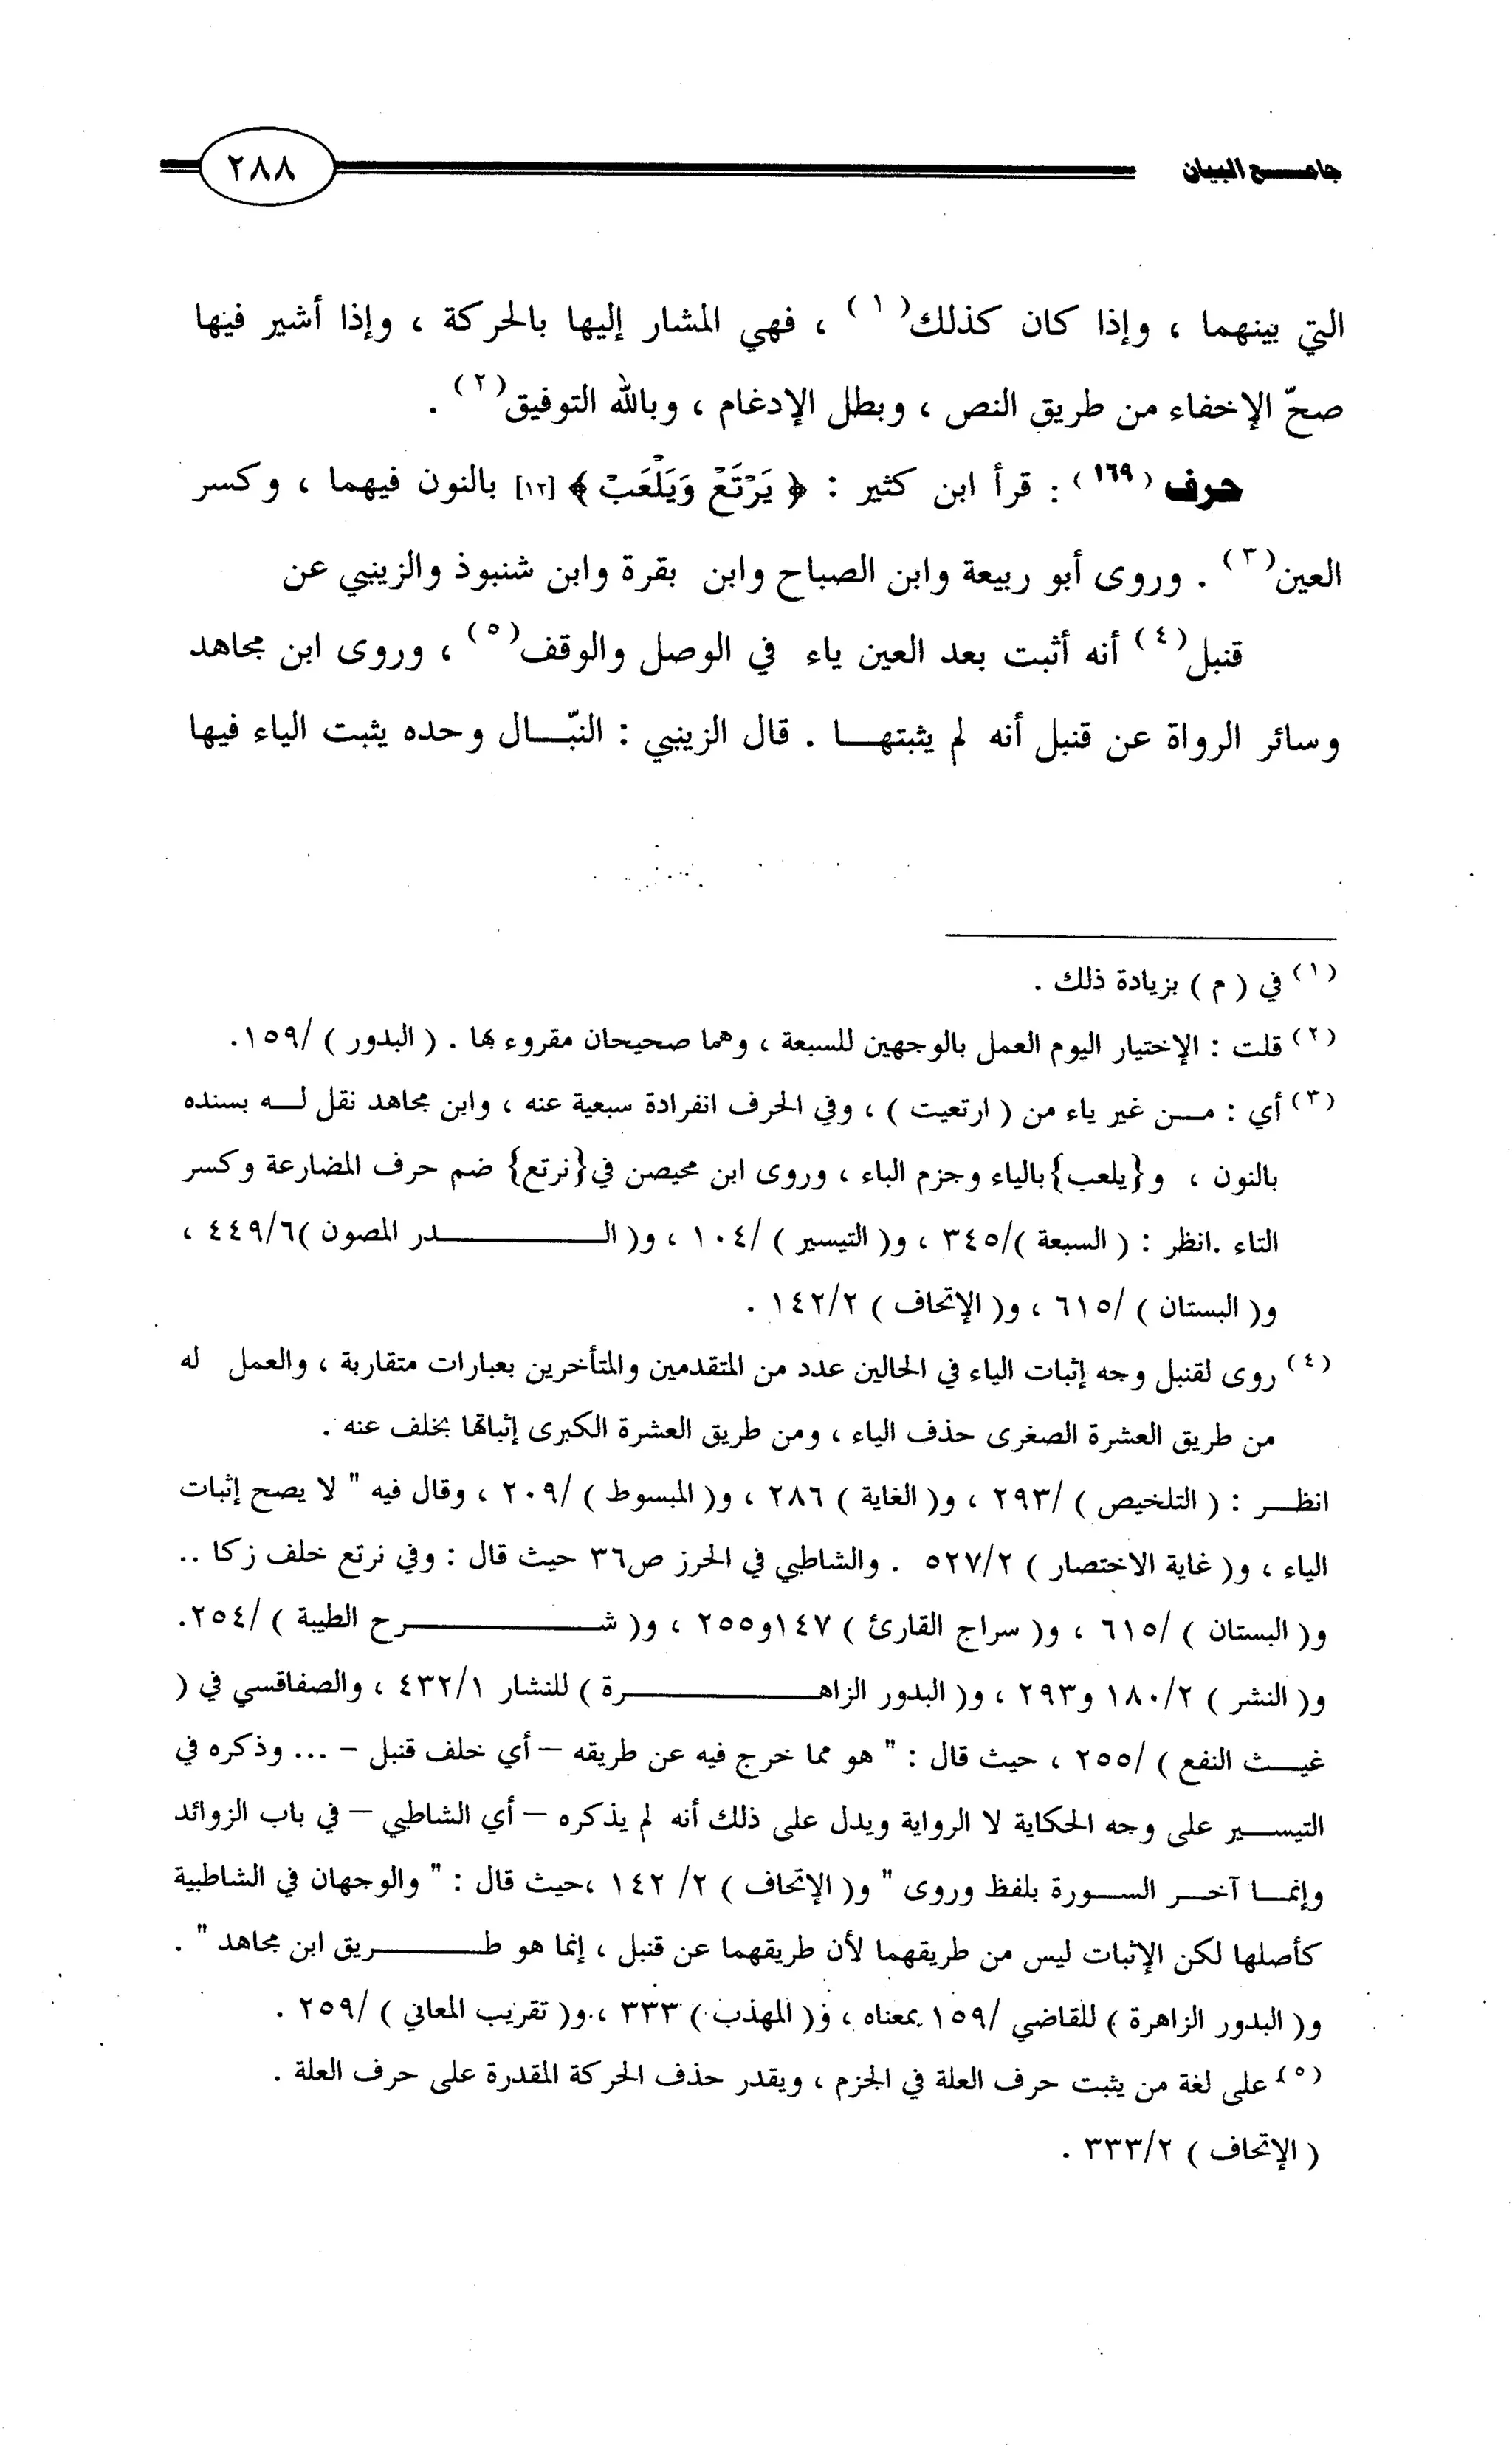 جامع البيان
٢٨٨
التي بينهما ، وإذا كان كذلك(١) ، فهي المشار إليها بالحركة ، وإذا أشير فيها
صحّ الإخفاء من طريق النص ، وبطل الإدغام ، وبالله التوفيق(٢) .
حرف (١٦٩) : قرأ ابن كثير : ﴿ يَرْتَعْ وَيَلْعَبْ ﴾ [١٢] بالنون فيهما ، وكسر
العين(٣) . وروى أبو ربيعة وابن الصباح وابن بقرة وابن شنبوذ والزينبي عن
قنبل(٤) أنه أثبت بعد العين ياء في الوصل والوقف(٥) ، وروى ابن مجاهد
وسائر الرواة عن قنبل أنه لم يثبتهـا . قال الزينبي : النبّـال وحده يثبت الياء فيها
(١) في ( م ) بزيادة ذلك .
(٢) قلت : الإختيار اليوم العمل بالوجهين للسبعة ، وهما صحيحان مقروء بها . ( البدور ) /١٥٩.
(٣) أي : مـن غير ياء من ( ارتعيت ) ، وفي الحرف انفرادة سبعية عنه ، وابن مجاهد نقل لـه بسنده
بالنون ، و{يلعب}بالياء وجزم الباء ، وروى ابن محيصن في{نرتع} ضم حرف المضارعة وكسر
التاء .انظر : ( السبعة )/٣٤٥ ، و( التيسير ) /١٠٤ ، و( الـدر المصون )٤٤٩/٦ ،
و( البستان ) /٦١٥ ، و( الإتحاف ) ١٤٢/٢ .
(٤) روى لقنبل وجه إثبات الياء في الحالين عدد من المتقدمين والمتأخرين بعبارات متقاربة ، والعمل له
من طريق العشرة الصغرى حذف الياء ، ومن طريق العشرة الكبرى إثباتها بخلف عنه .
انظـر : ( التلخيص ) /٢٩٣ ، و( الغاية ) ٢٨٦ ، و( المبسوط ) /٢٠٩ ، وقال فيه " لا يصح إثبات
الياء ، و( غاية الاختصار ) ٥٢٧/٢ . والشاطبي في الحرز ص٣٦ حيث قال : وفي نرتع خلف زكا ..
و( البستان ) /٦١٥ ، و( سراج القارئ ) ١٤٧و٢٥٥ ، و( شـرح الطيبة ) /٢٥٤.
و( النشر ) ١٨٠/٢ و٢٩٣ ، و( البدور الزاهـرة ) للنشار ٤٣٢/١ ، والصفاقسي في (
غيـث النفع ) /٢٥٥ ، حيث قال : " هو مما خرج فيه عن طريقه – أي خلف قنبل – ... وذكره في
التيسـير على وجه الحكاية لا الرواية ويدل على ذلك أنه لم يذكره – أي الشاطبي – في باب الزوائد
وإنمـا آخـر السـورة بلفظ وروى " و( الإتحاف ) ٢/ ١٤٢ ،حيث قال : " والوجهان في الشاطبية
كأصلها لكن الإثبات ليس من طريقهما لأن طريقهما عن قنبل ، إنما هو طـريق ابن مجاهد " .
و( البدور الزاهرة ) للقاضي /١٥٩ بمعناه ، و( المهذب ) ٣٣٣ ، و( تقريب المعاني ) /٢٥٩ .
(٥) على لغة من يثبت حرف العلة في الجزم ، ويقدر حذف الحركة المقدرة على حرف العلة .
( الإتحاف ) ٣٣٣/٢ .